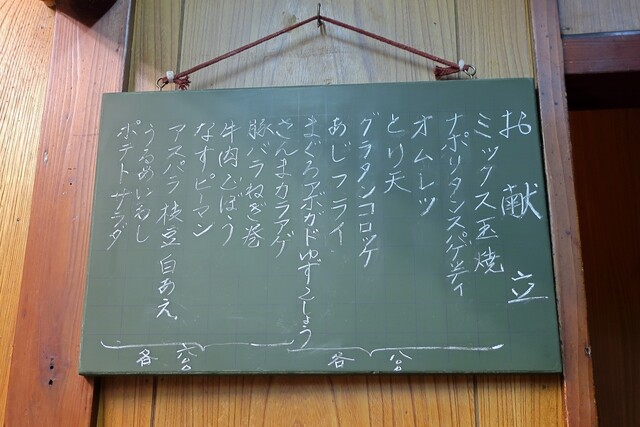 お献立
ミックス玉焼
ナポリタンスパゲティ
オムレツ
とり天
グラタンコロッケ
あじフライ
まぐろアボガドゆずこしょう
さんまカラアゲ
豚バラねぎ巻
牛肉ごぼう
なすピーマン
アスパラ 枝豆 白あえ
うるめいわし
ポテトサラダ
各 八百
各 六百